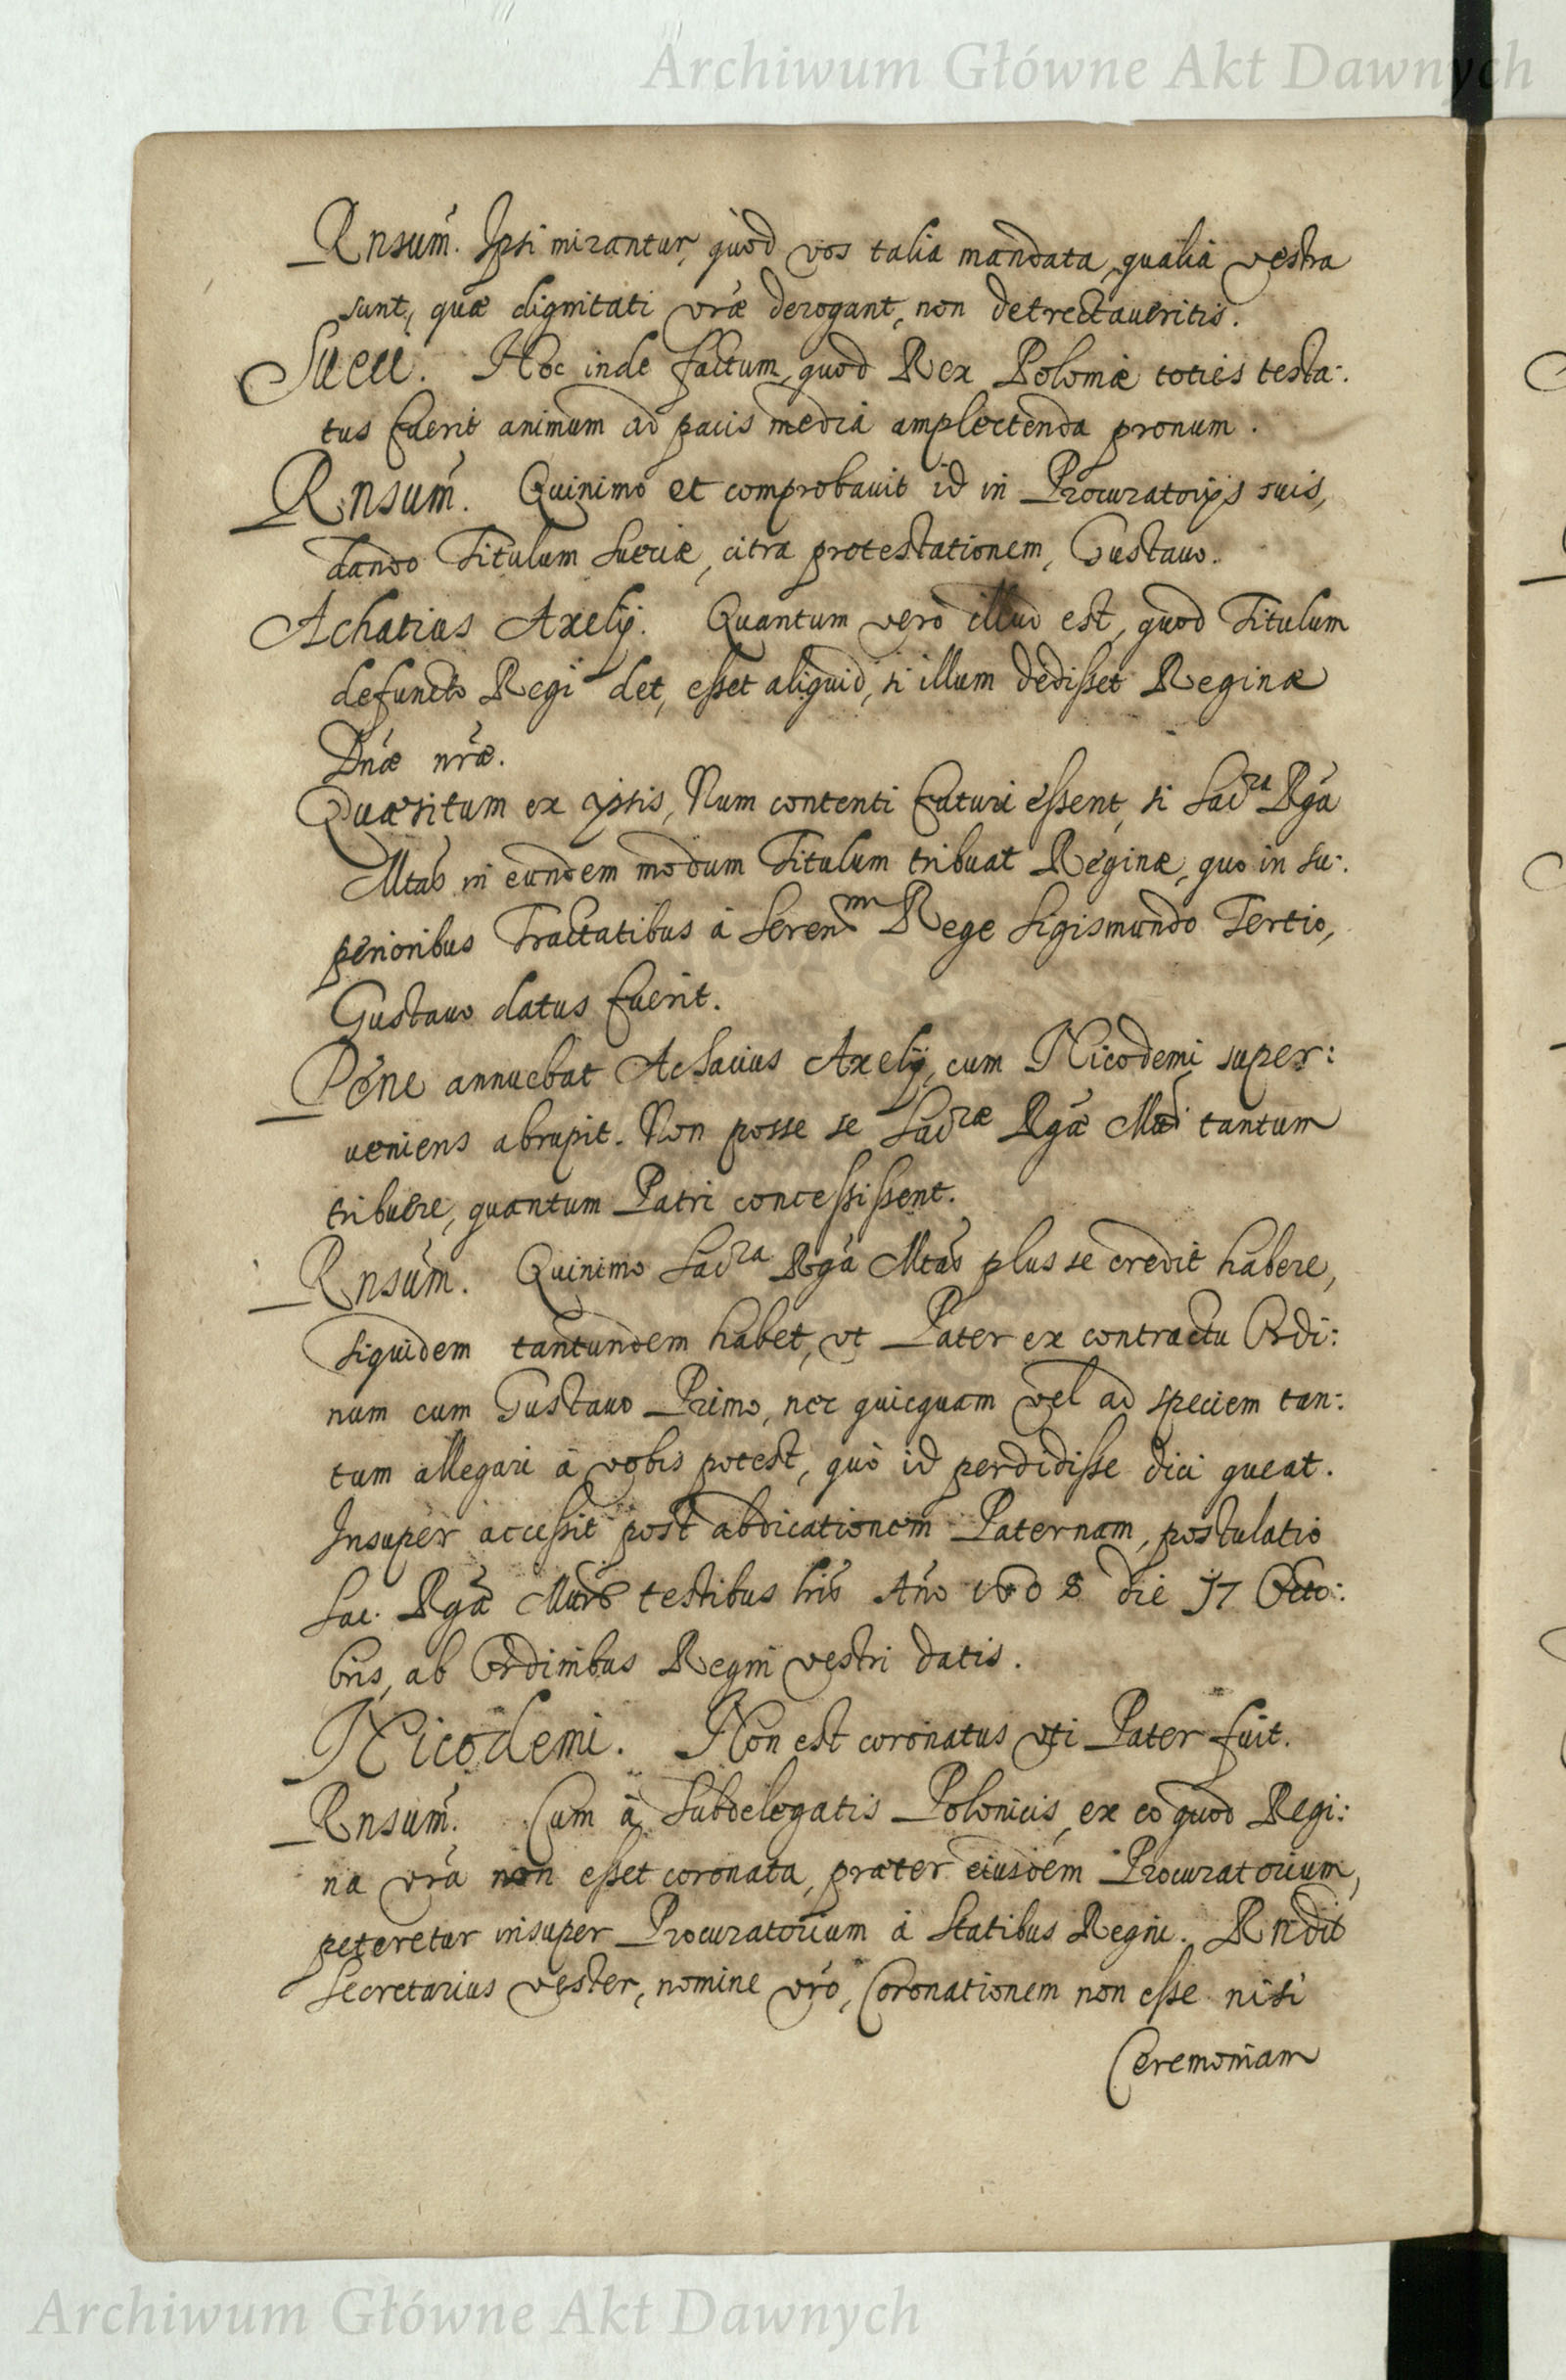 Archiwum Główne Akt Dawnych
Rnsum̃. Ipsi mirantur, quòd vos talia mandata, qualia vestra
sunt, quæ dignitati vr̃æ derogant, non detrectaueritis.
Sueci. Hoc inde factum, quod Rex Poloniæ toties testa:
tus fuerit animum ad pacis media amplectenda pronum.
Rnsum̃. Quinimo et comprobauit id in Procuratorijs suis,
dando Titulum Sueciæ, citra protestationem, Gustauo.
Achatius Axelij. Quantum vero illud est, quod Titulum
defuncto Regi det, esset aliquid, si illum dedisset Reginæ
Dnæ nr̃æ.
Quæsitum ex ipsis, Num contenti futuri essent, si Sacra Rga
Mtas in eundem modum Titulum tribuat Reginæ, quo in su:
perioribus Tractatibus à Serenmo Rege Sigismundo Tertio,
Gustauo datus fuerit.
Pene annuebat Achacius Axelij, cum Nicodemi super:
ueniens abrupit. Non posse se Sacræ Rgæ Mti tantum
tribuere, quantum Patri concessissent.
Rnsum̃. Quinimo Sacra Rga Mtas plus se credit habere,
siquidem tantundem habet, vt Pater ex contractu Ordi:
num cum Gustauo Primo, nec quicquam vel ad speciem tan:
tum allegari à vobis potest, quò id perdidisse dici queat.
Insuper accessit post abdicationem Paternam, postulatio
Sac. Rgæ Mtis testibus lris Año 1608 die 17 Octo:
bris, ab Ordinibus Regni vestri datis.
Nicodemi. Non est coronatus vti Pater fuit.
Rnsum̃. Cum à Subdelegatis Polonicis, ex eo quod Regi:
na vr̃a non esset coronata, præter eiusdem Procuratorium,
peteretur insuper Procuratorium à Statibus Regni. Rndit
Secretarius vester, nomine vr̃o, Coronationem non esse nisi
Ceremoniam
Archiwum Główne Akt Dawnych